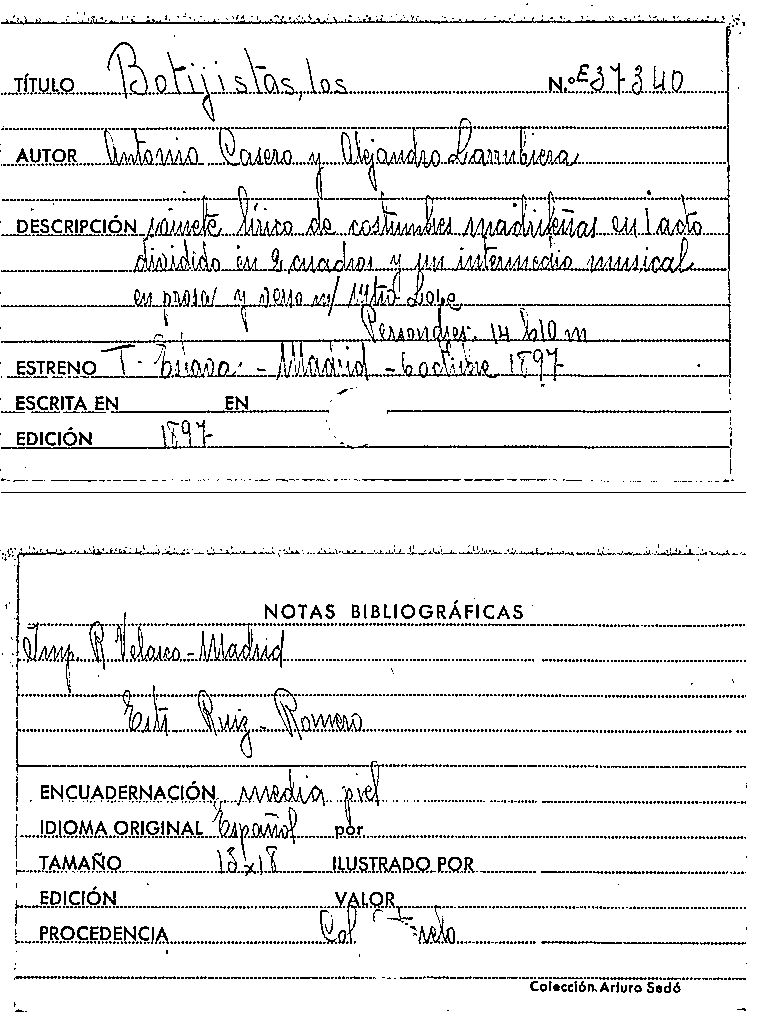 TÍTULO Botijistas, los N.º E37-340
AUTOR Antonio Casero y Alejandro Larrubiera
DESCRIPCIÓN sainete lírico de costumbres madrileñas en 1 acto
dividido en 2 cuadros y un intermedio musical
en prosa y verso m/ Mtro Lope
Personajes: 14 h 10 m
ESTRENO T. Eslava. - Madrid - 6 octubre 1897
ESCRITA EN EN
EDICIÓN 1897
NOTAS BIBLIOGRÁFICAS
Imp. R Velasco - Madrid
Ruiz - Romero
ENCUADERNACIÓN media piel
IDIOMA ORIGINAL Español por
TAMAÑO 13x18 ILUSTRADO POR
EDICIÓN VALOR
PROCEDENCIA Col
Colección Arturo Sedó